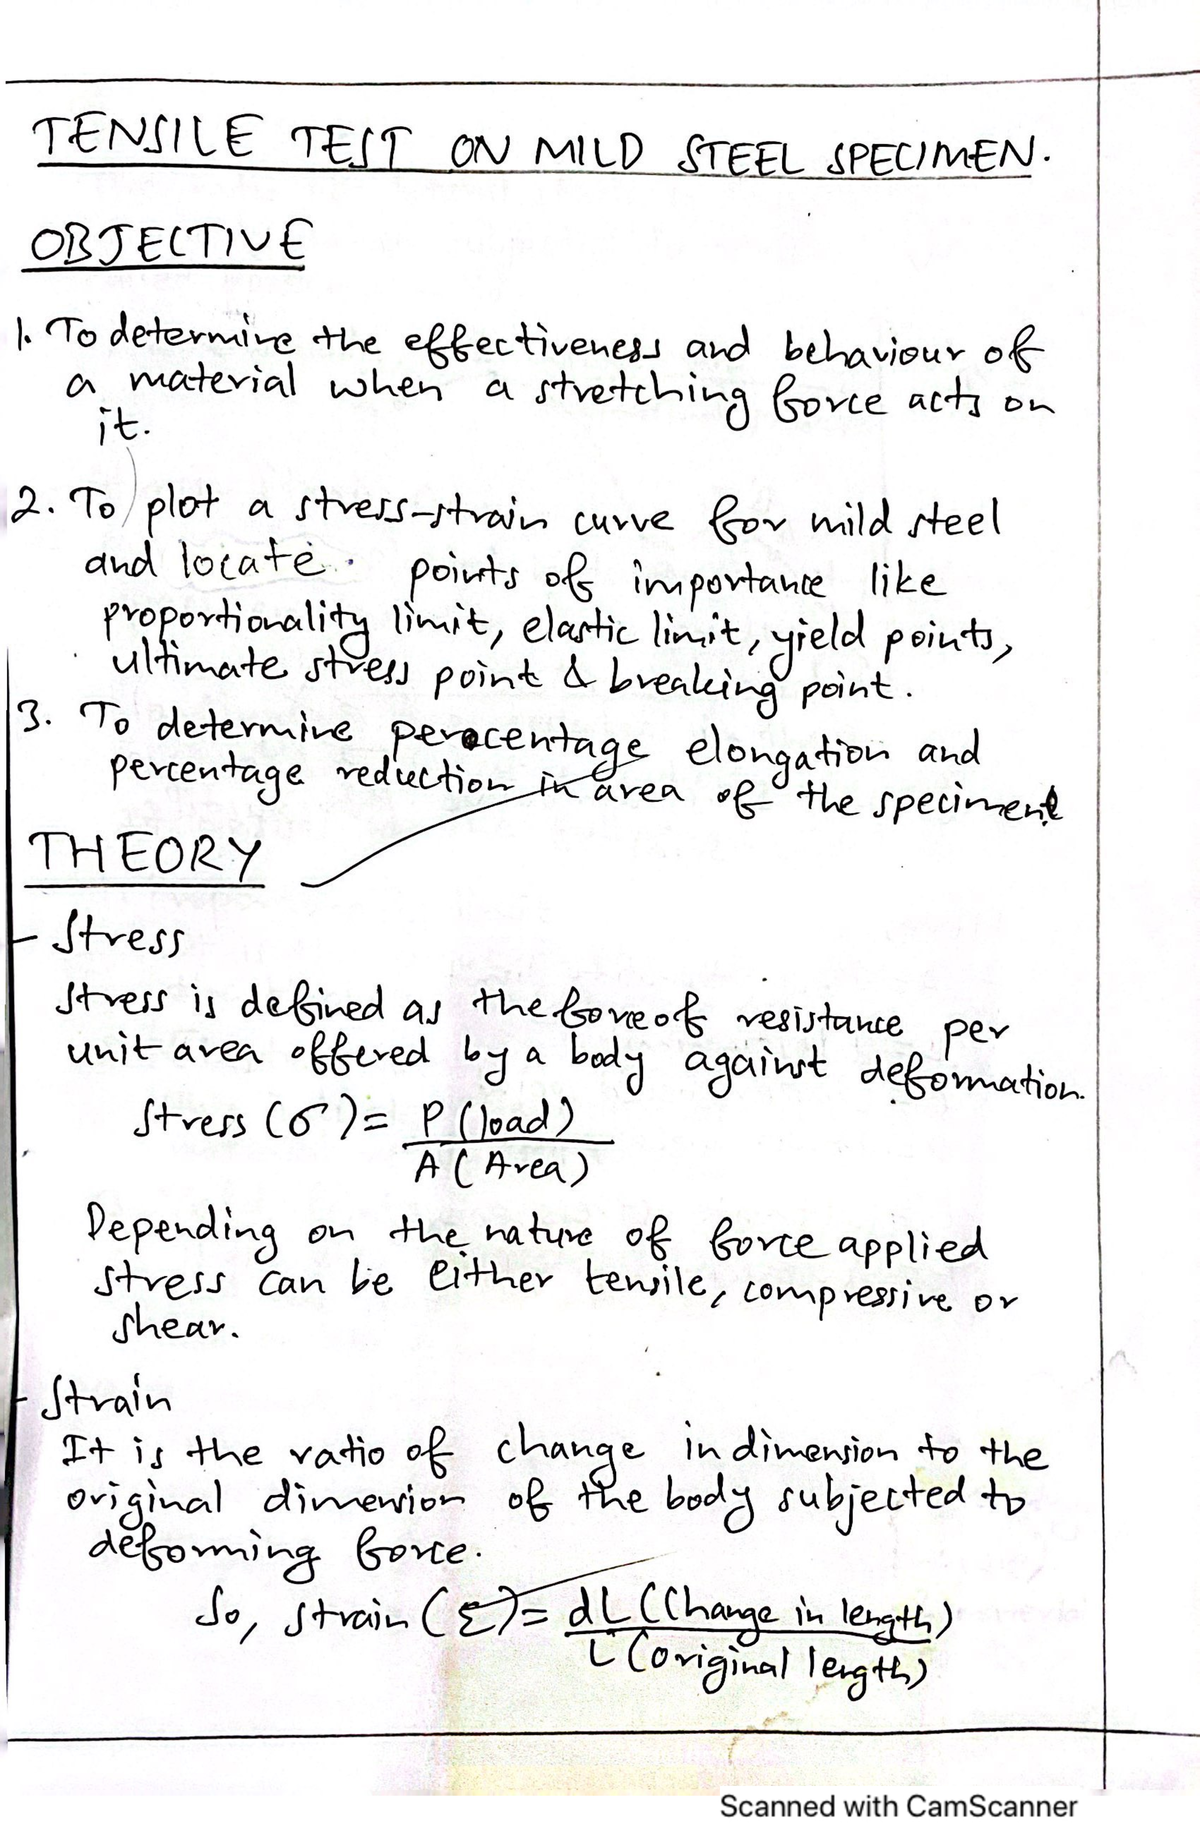 TENSILE TEST ON MILD STEEL SPECIMEN.
OBJECTIVE
1. To determine the effectiveness and behaviour of
a material when a stretching force acts on
it.
2. To plot a stress-strain curve for mild steel
and locate points of importance like
proportionality limit, elastic limit, yield points,
ultimate stress point & breaking point.
3. To determine percentage elongation and
percentage reduction in area of the speciment
THEORY
- Stress
Stress is defined as the force of resistance per
unit area offered by a body against deformation.
Stress (σ) = P (load)
A (Area)
Depending on the nature of force applied
stress can be either tensile, compressive or
shear.
- Strain
It is the ratio of change in dimension to the
original dimension of the body subjected to
deforming force.
So, strain (Σ) = dL (Change in length)
L (original length)
Scanned with CamScanner